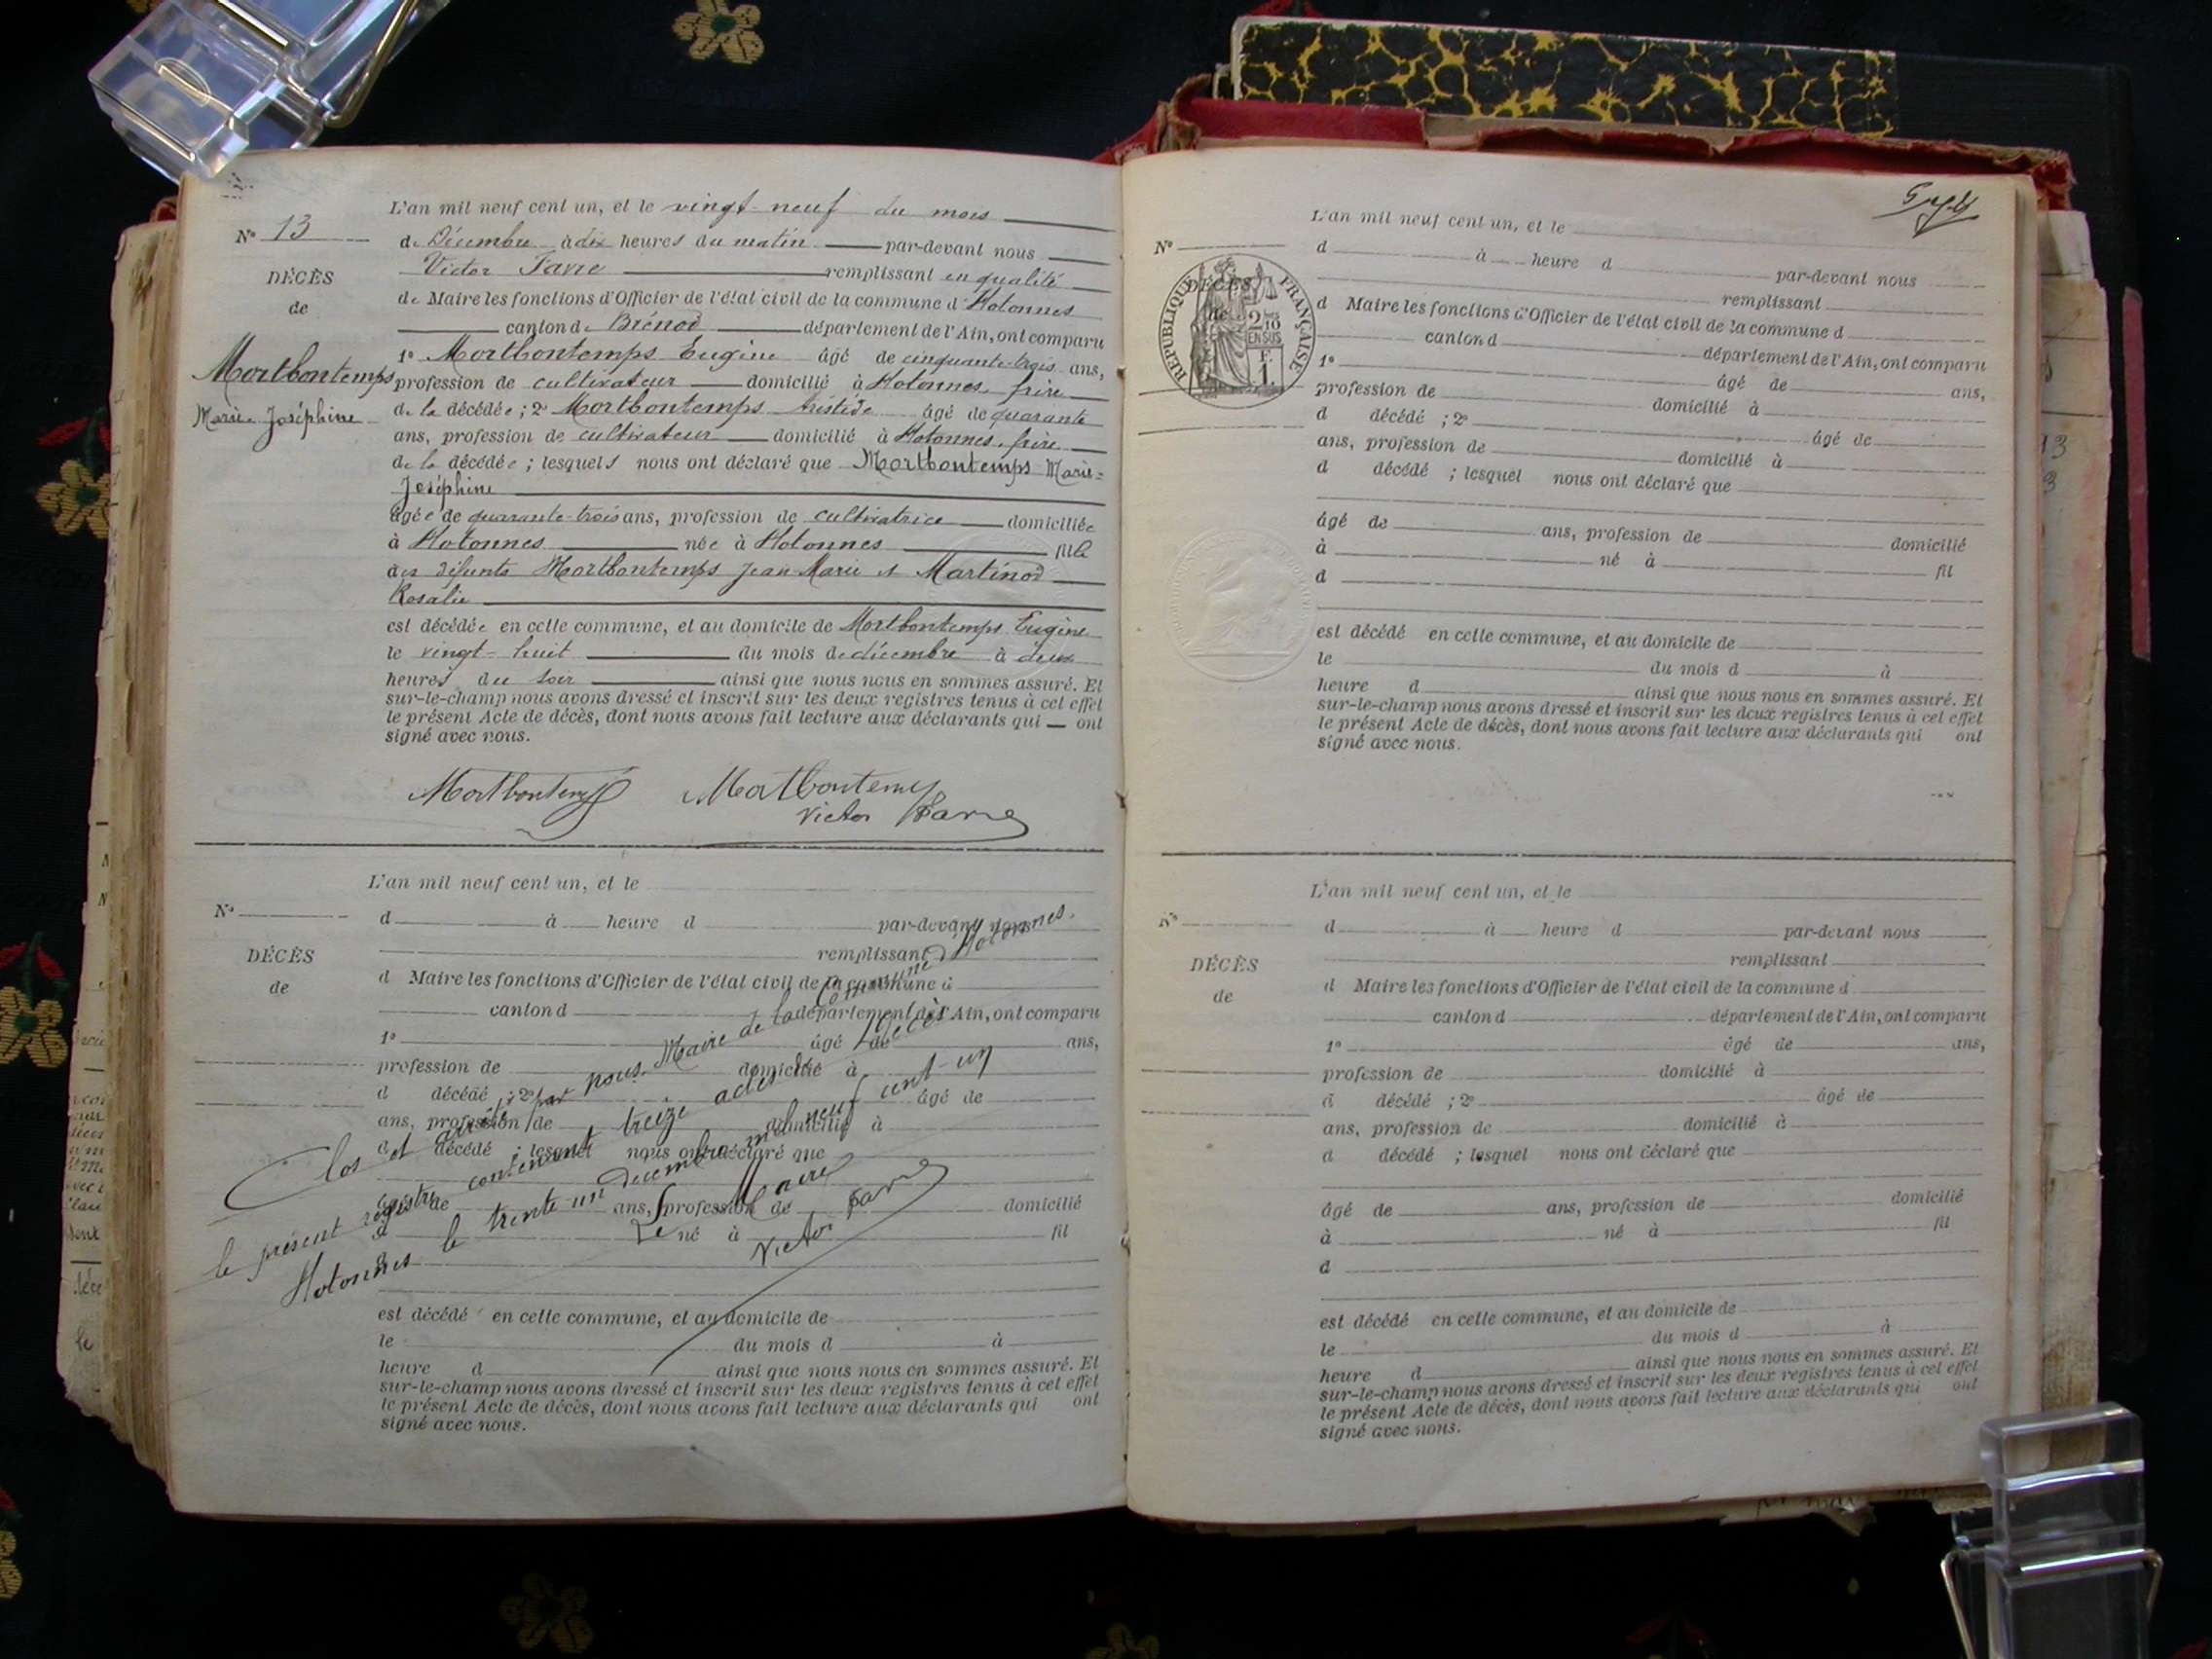 L'an mil neuf cent un, et le vingt-neuf du mois
N° 13
de Décembre à dix heures du matin par-devant nous
Victor Favre remplissant en qualité
DÉCÈS
de Maire les fonctions d'Officier de l'état civil de la commune d'Hotonnes
de
canton de Brénod département de l'Ain, ont comparu
1° Mortbontemps Eugène âgé de cinquante-trois ans,
Mortbontemps
profession de cultivateur domicilié à Hotonnes, frère
Marie-Joséphine
de la décédée ; 2° Mortbontemps Aristide âgé de quarante
ans, profession de cultivateur domicilié à Hotonnes, frère
de la décédée ; lesquels nous ont déclaré que Mortbontemps Marie=
Joséphine
âgée de quarante-trois ans, profession de cultivatrice domiciliée
à Hotonnes née à Hotonnes fille
des défunts Mortbontemps Jean-Marie et Martinod
Rosalie
est décédée en cette commune, et au domicile de Mortbontemps Eugène
le vingt-huit du mois de décembre à deux
heures du soir ainsi que nous nous en sommes assuré. Et
sur-le-champ nous avons dressé et inscrit sur les deux registres tenus à cet effet
le présent Acte de décès, dont nous avons fait lecture aux déclarants qui ont
signé avec nous.
Mortbontemps Mortbontemps
Victor Favre
L'an mil neuf cent un, et le
N°
d à heure d par-devant nous
remplissant
DÉCÈS
d Maire les fonctions d'Officier de l'état civil de la commune d
de
canton d département de l'Ain, ont comparu
1° âgé de ans,
profession de domicilié à
d décédé ; 2° âgé de
ans, profession de domicilié à
d décédé ; lesquel nous ont déclaré que
âgé de ans, profession de domicilié
à né à fil
d
est décédé en cette commune, et au domicile de
le du mois d à
heure d ainsi que nous nous en sommes assuré. Et
sur-le-champ nous avons dressé et inscrit sur les deux registres tenus à cet effet
le présent Acte de décès, dont nous avons fait lecture aux déclarants qui ont
signé avec nous.
Clos et arrêté par nous, Maire de la Commune d'Hotonnes.
le présent registre contenant treize actes de décès
Hotonnes le trente-un Décembre mil neuf cent-un
Le Maire
Victor Favre
L'an mil neuf cent un, et le
N°
d à heure d par-devant nous
remplissant
DÉCÈS
de
RÉPUBLIQUE FRANÇAISE
2/10 EN SUS
F. 1.
d Maire les fonctions d'Officier de l'état civil de la commune d
canton d département de l'Ain, ont comparu
1° âgé de ans,
profession de domicilié à
d décédé ; 2° âgé de
ans, profession de domicilié à
d décédé ; lesquel nous ont déclaré que
âgé de ans, profession de domicilié
à né à fil
d
est décédé en cette commune, et au domicile de
le du mois d à
heure d ainsi que nous nous en sommes assuré. Et
sur-le-champ nous avons dressé et inscrit sur les deux registres tenus à cet effet
le présent Acte de décès, dont nous avons fait lecture aux déclarants qui ont
signé avec nous.
L'an mil neuf cent un, et le
N°
d à heure d par-devant nous
remplissant
DÉCÈS
d Maire les fonctions d'Officier de l'état civil de la commune d
de
canton d département de l'Ain, ont comparu
1° âgé de ans,
profession de domicilié à
d décédé ; 2° âgé de
ans, profession de domicilié à
d décédé ; lesquel nous ont déclaré que
âgé de ans, profession de domicilié
à né à fil
d
est décédé en cette commune, et au domicile de
le du mois d à
heure d ainsi que nous nous en sommes assuré. Et
sur-le-champ nous avons dressé et inscrit sur les deux registres tenus à cet effet
le présent Acte de décès, dont nous avons fait lecture aux déclarants qui ont
signé avec nous.